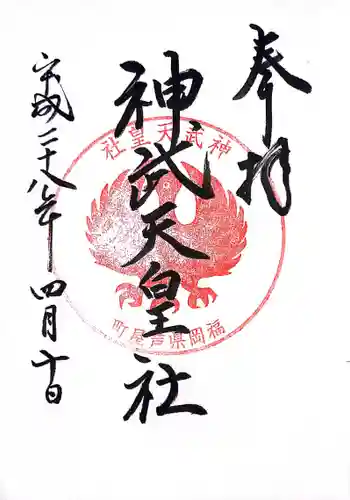 奉拝
神武天皇社
平成二十八年 四月十日
神武天皇社
福岡県芦屋町